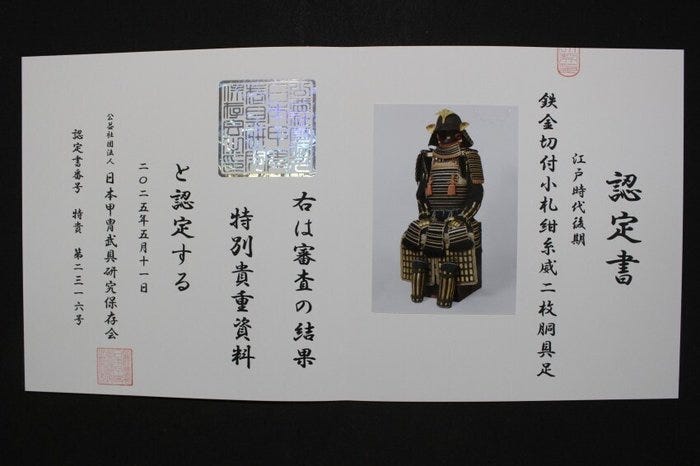 認定書
鉄金切付小札紺糸威二枚胴具足
江戸時代後期
右は審査の結果
特別貴重資料
と認定する
二〇二五年五月十一日
公益社団法人 日本甲冑武具研究保存会
認定書番号 特貴 第二三一六号